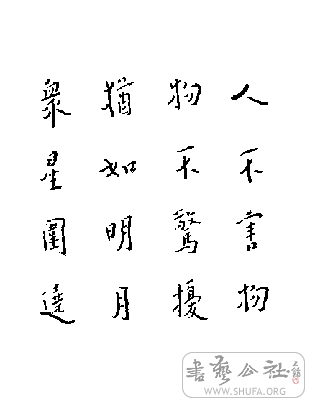 人不害物
物不驚擾
猶如明月
衆星圍遶
書藝公社
WWW.SHUFA.ORG